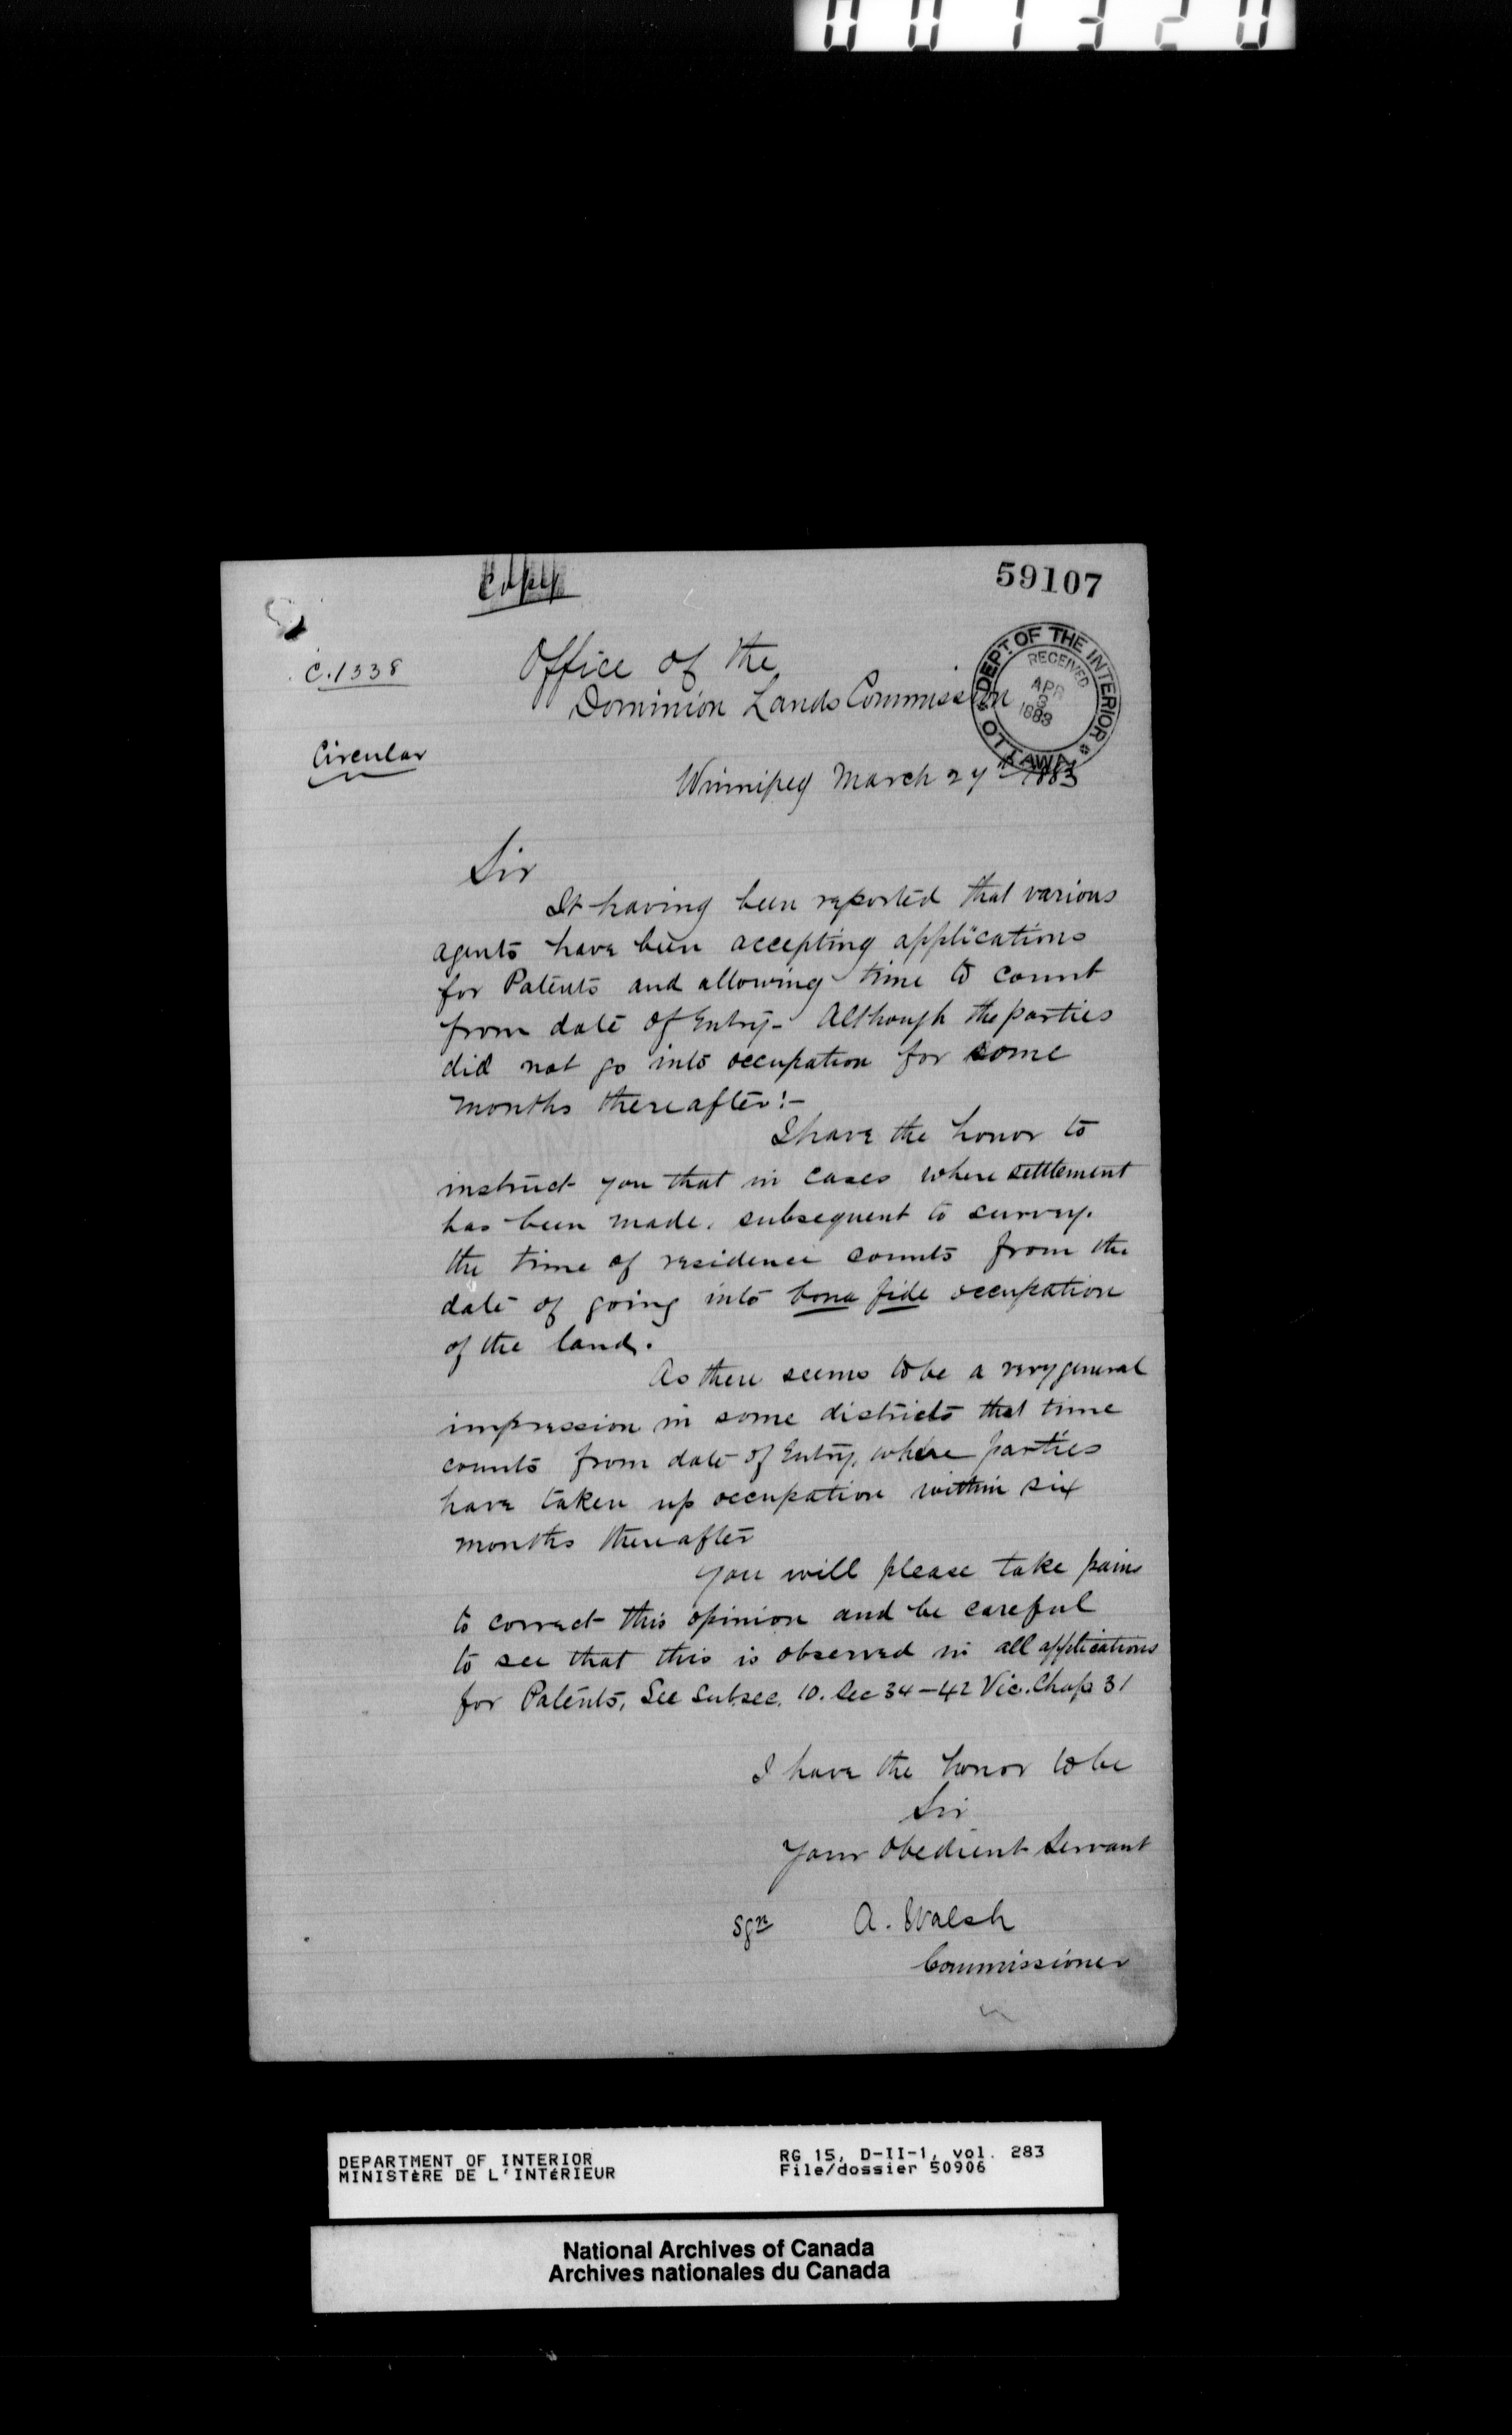 001320
Copy
59107
C.1338
Office of the
Dominion Lands Commission
DEPT. OF THE INTERIOR
RECEIVED
APR
3
1883
OTTAWA
Circular
Winnipeg March 27th 1883
Sir
It having been reported that various
agents have been accepting applications
for Patents and allowing time to count
from date of Entry - Although the parties
did not go into occupation for some
months thereafter:-
I have the honor to
instruct you that in cases where settlement
has been made, subsequent to survey.
the time of residence counts from the
date of going into bona fide occupation
of the land.
As there seems to be a very general
impression in some districts that time
counts from date of Entry, where parties
have taken up occupation within six
months thereafter
You will please take pains
to correct this opinion and be careful
to see that this is observed in all applications
for Patents, See Subsec. 10. Sec 34-42 Vic. Chap 31
I have the honor to be
Sir
Your Obedient Servant
Sgn A. Walsh
Commissioner
DEPARTMENT OF INTERIOR
MINISTÈRE DE L'INTÉRIEUR
RG 15, D-II-1, vol. 283
File/dossier 50906
National Archives of Canada
Archives nationales du Canada